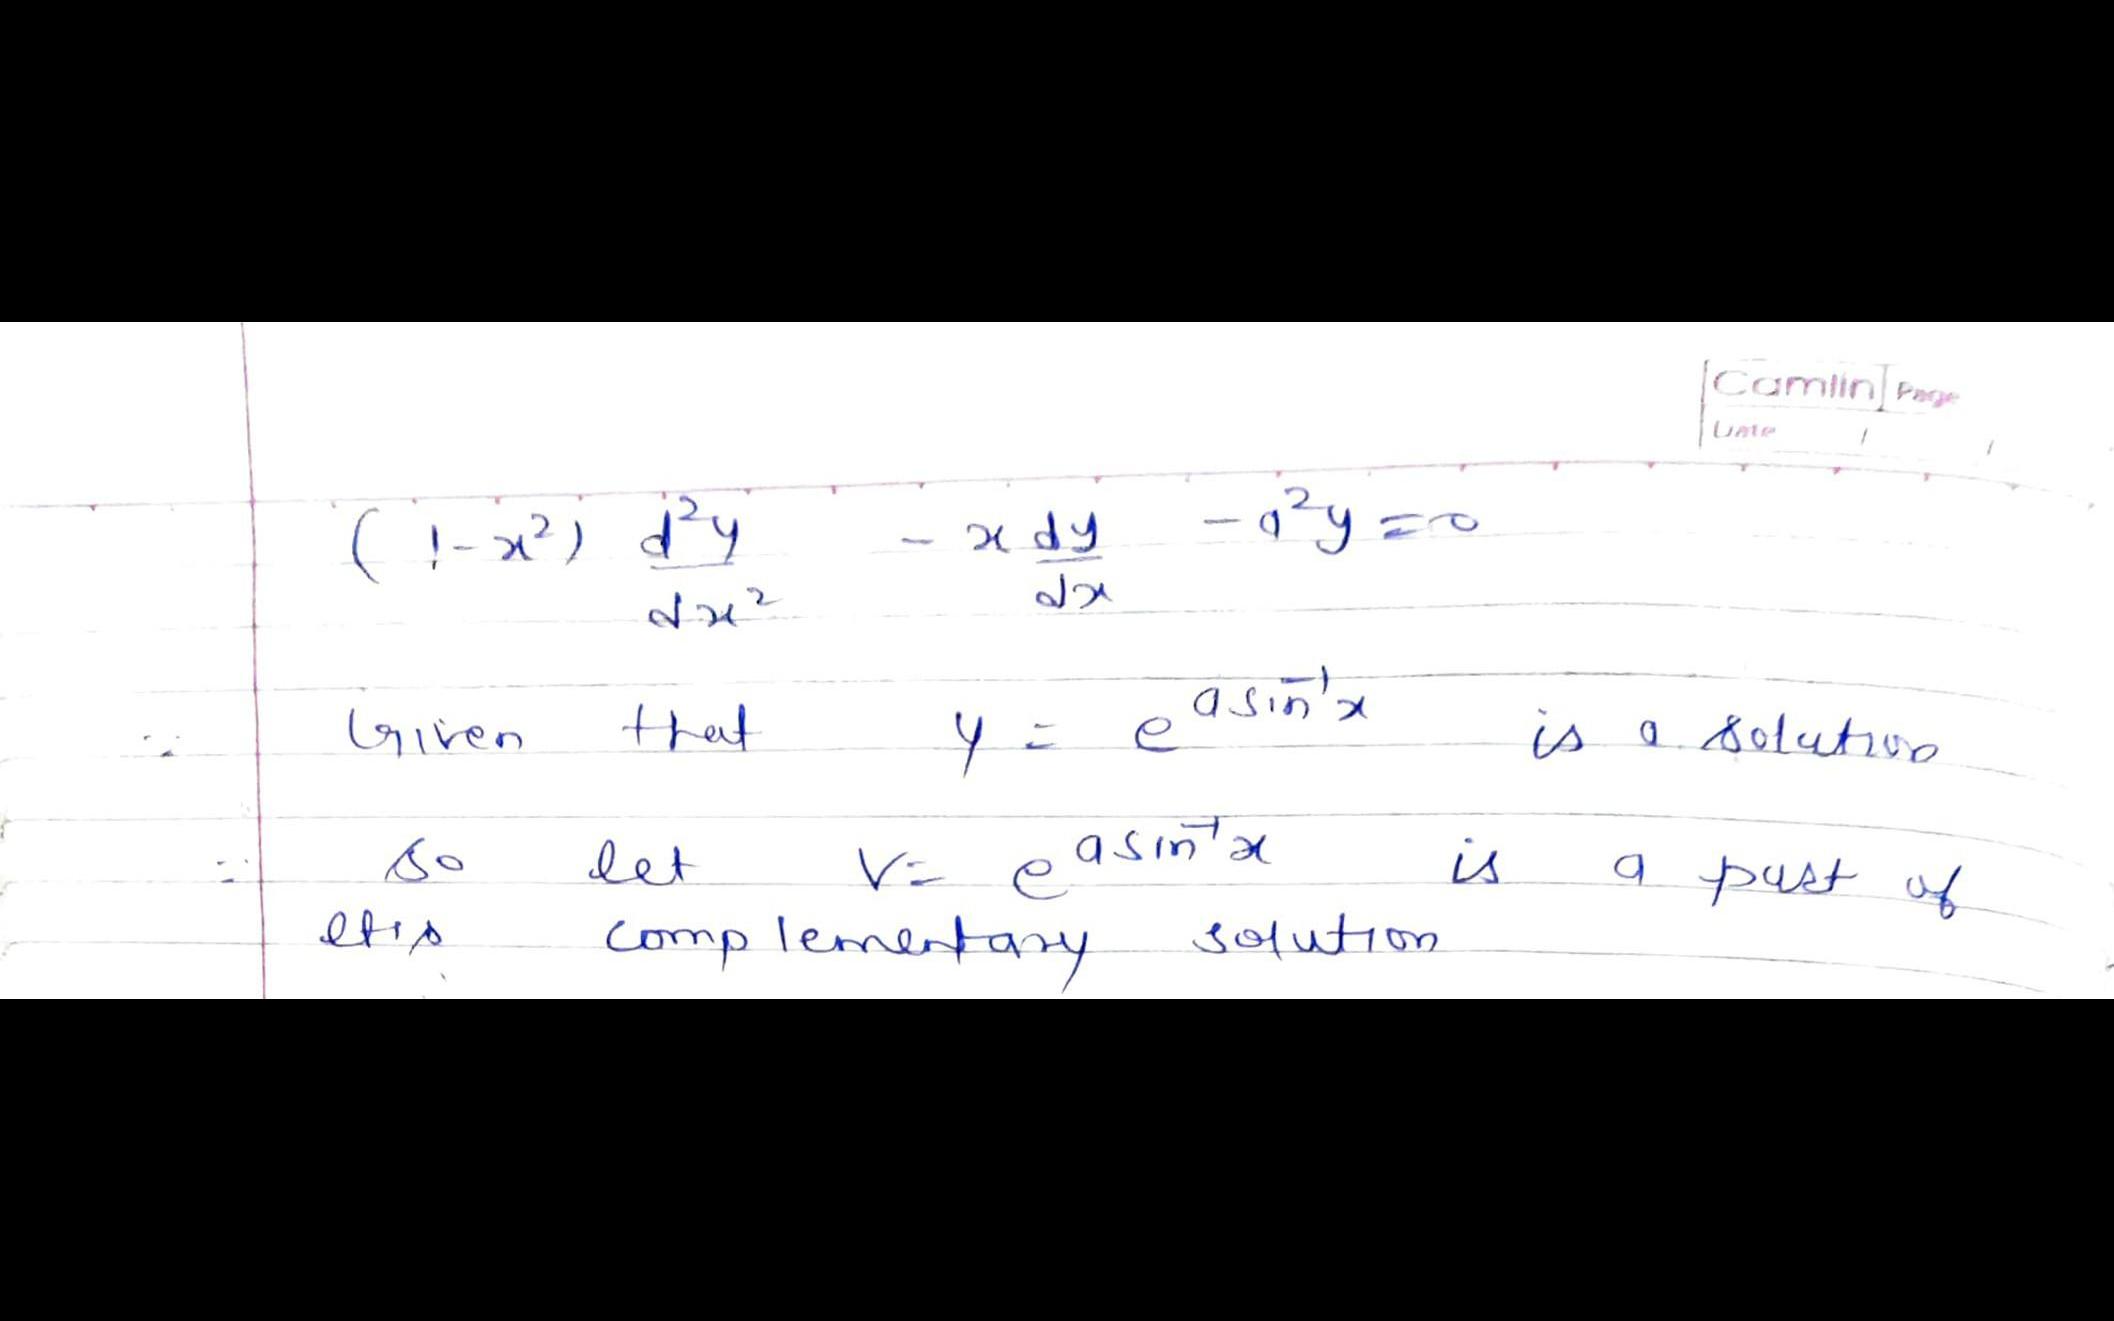 Camlin Page
Date / /
(1-x²) d²y/dx² - x dy/dx - a²y = 0
∵ Given that y = e^(a sin⁻¹x) is a solution
∴ so let v = e^(a sin⁻¹x) is a part of
complementary solution